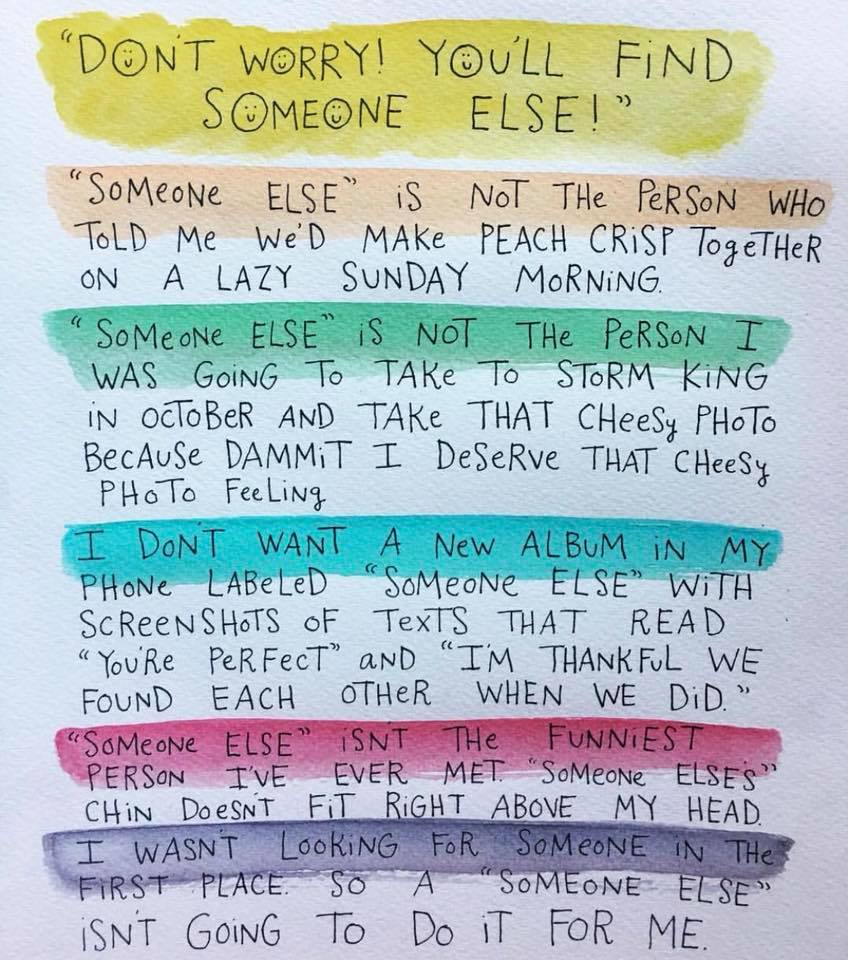 "DON'T WORRY! YOU'LL FiND
SOMEONE ELSE!"
"SoMeoNe ELSE" iS NoT THe PeRSoN WHO
ToLD Me We'D MAKe PEACH CRiSP TogeTHeR
ON A LAZY SUNDAY MoRNiNG.
"SoMeoNe ELSE" iS NOT THe PeRSoN I
WAS GoiNG To TAKe To SToRM KiNG
iN OCToBeR AND TAKe THAT CHeeSy PHoTo
BecAuSe DAMMiT I DeSeRVe THAT CHeeSy
PHoTo FeeLiNg
I DoN'T WANT A NeW ALBUM iN MY
PHoNe LABeLeD "SoMeoNe ELSE" WiTH
ScReeNSHoTS oF TexTS THAT READ
"You'Re PeRFecT" aND "I'M THANKFuL WE
FOUND EACH oTHeR WHEN WE DiD."
"SoMeoNe ELSE" iSN'T THe FUNNiEST
PERSoN I'VE EVER MET. "SoMeoNe ELSE'S"
CHiN DoeSN'T FiT RiGHT ABOVE MY HEAD.
I WASN'T LooKiNG FoR SoMEoNE IN THe
FiRST PLACE. SO A "SOMEONE ELSE"
iSN'T GOiNG TO Do iT FOR ME.